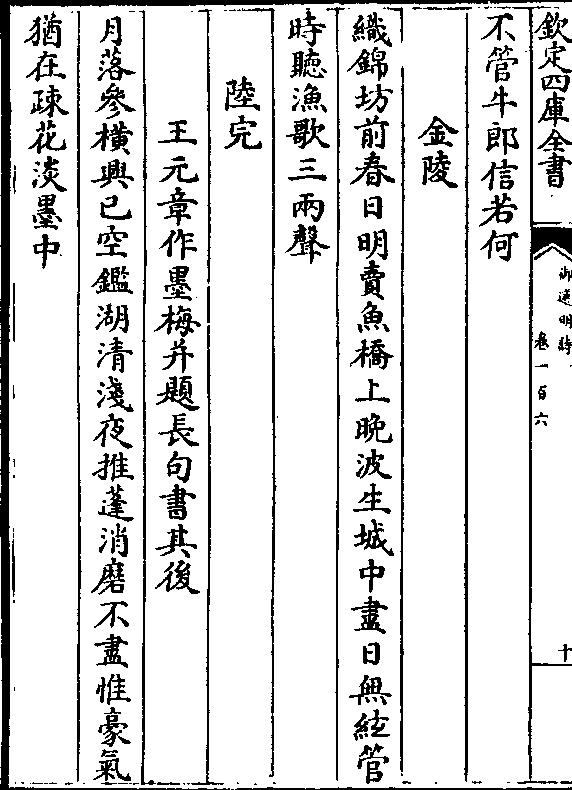 欽定四庫全書
御選明詩
卷一百六
十
不管牛郎信若何
金陵
織錦坊前春日明賣魚橋上晚波生城中盡日無絃管
時聽漁歌三兩聲
陸完
王元章作墨梅并題長句書其後
月落參橫興已空鑑湖清淺夜推蓬消磨不盡惟豪氣
猶在疎花淡墨中